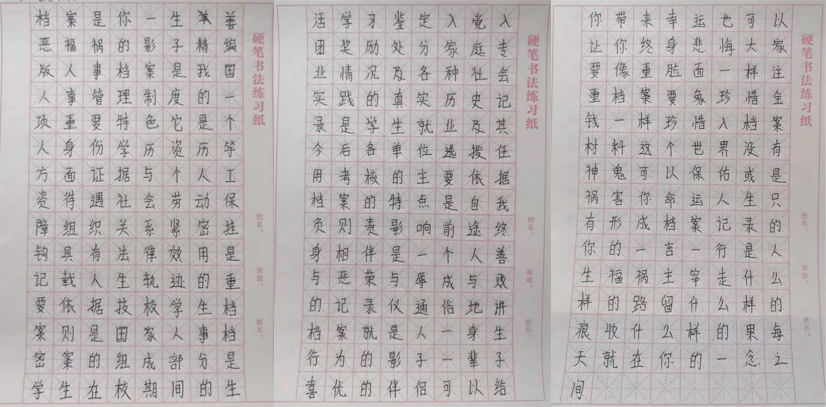 档案是你一生善
恶福祸的影子精编
版人事档案是我国
人事管理制度的一
项重要特色它是个
人身份学历资历等
方面证据与个人工
资待遇社会劳动保
障组织关系紧密挂
钩具有法律效用是
记载人生轨迹的重
要依据技校学生档
案则是国家人事档
密案的组成部分是
学生在校期间的生
硬笔书法练习纸
校名:
班级:
姓名:
活学习鉴定入党入
团奖励处分家庭专
业情况及各种社会
实践的真实历史记
录是学生就业及其
今后各单位选拨任
用考核的主要依据
档案的特点是自我
负则责影响前途终
身相伴是一个人善
与恶荣与辱成与败
的记录仪通俗地讲
档案就是人一身生
行为的影子一辈子
喜优的伴侣可以给
硬笔书法练习纸
校名:
班级:
姓名:
你带来幸运也可以
让你终身悲悔大家
要像重脸面一样注
重档案要象珍惜金
钱一样珍惜入档案
材料这个世界没有
神鬼可以保佑或是
祸害你命运人生只
有形成档案记录的
你的一言一行是人
生福祸主宰走什么
样的路留什么样的
痕收什么样的果每
天就在你的一念之
间
硬笔书法练习纸
校名:
班级:
姓名: